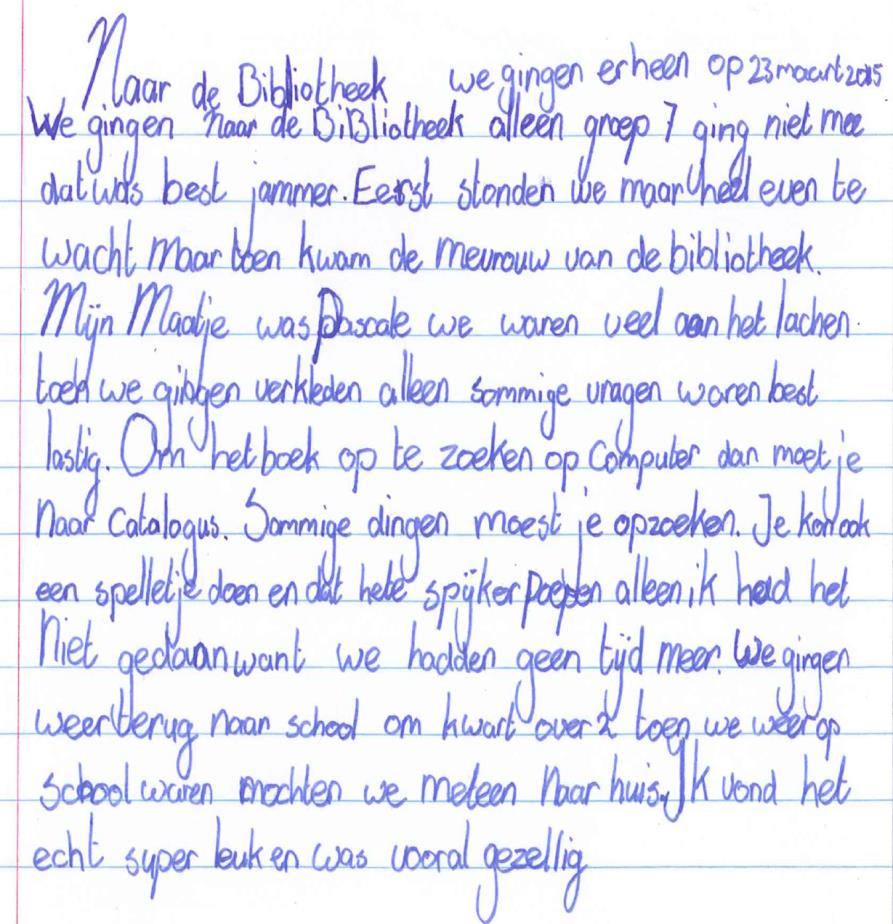 Naar de Bibliotheek we gingen erheen op 23 maart 2015
We gingen naar de BiBliotheek alleen groep 7 ging niet mee
dat was best jammer. Eerst stonden we maar heel even te
wacht maar toen kwam de mevrouw van de bibliotheek.
Mijn Maatje was Pascale we waren veel aan het lachen.
toen we gingen verkleden alleen sommige vragen waren best
lastig. Om het boek op te zoeken op Computer dan moet je
naar Catalogus. Sommige dingen moest je opzoeken. Je kon ook
een spelletje doen en dat hete spijker poepen alleen ik had het
Niet gedaan want we hadden geen tijd meer. We gingen
weer terug naar school om kwart over 2 toen we weer op
school waren mochten we meteen naar huis. Ik vond het
echt super leuk en was vooral gezellig